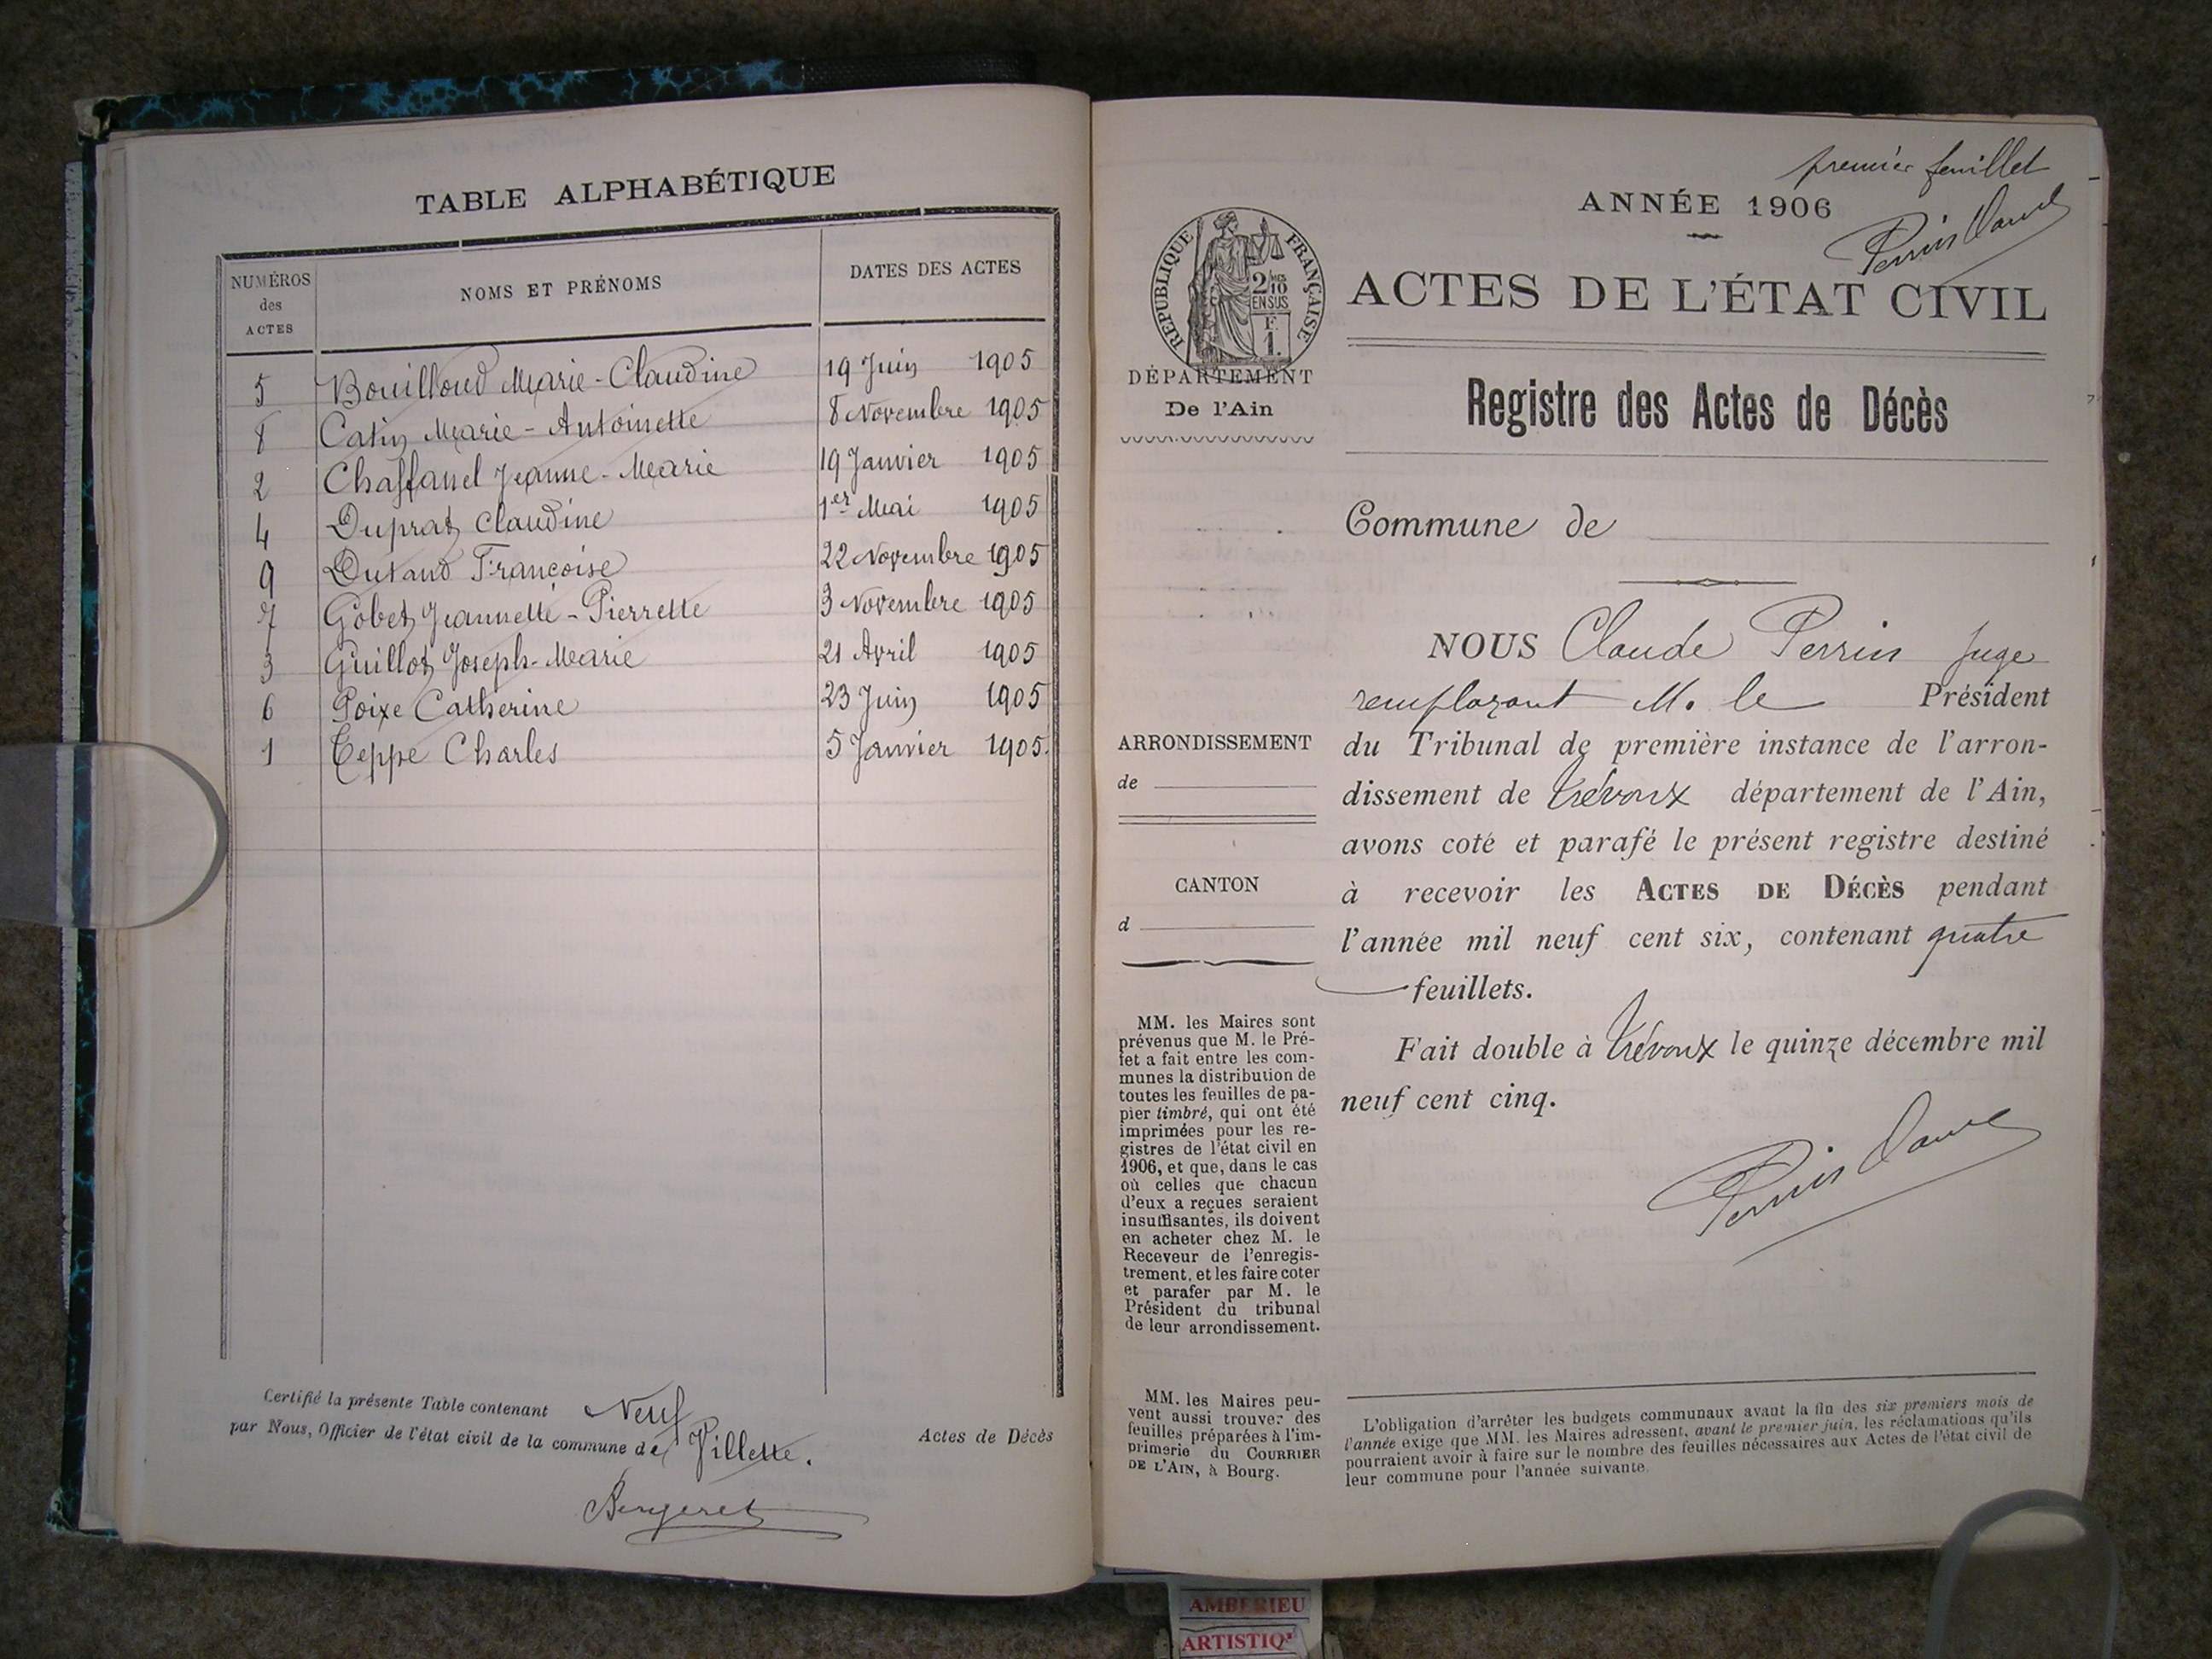 TABLE ALPHABÉTIQUE
NUMÉROS des ACTES NOMS ET PRÉNOMS DATES DES ACTES
5 Bouilloud Marie-Claudine 19 Juin 1905
8 Catin Marie-Antoinette 8 Novembre 1905
2 Chaffanel Jeanne-Marie 19 Janvier 1905
4 Duprat Claudine 1er Mai 1905
9 Dutand Françoise 22 Novembre 1905
7 Gobet Jeannette-Pierrette 3 Novembre 1905
3 Guillot Joseph-Marie 21 Avril 1905
6 Poixe Catherine 23 Juin 1905
1 Teppe Charles 5 Janvier 1905.
Certifié la présente Table contenant Neuf Actes de Décès
par Nous, Officier de l'état civil de la commune de Villette.
Bergeret
premier feuillet
ANNÉE 1906
RÉPUBLIQUE FRANÇAISE
2/10MES
EN SUS
F.
1.
ACTES DE L'ÉTAT CIVIL
DÉPARTEMENT
De l'Ain
Registre des Actes de Décès
Commune de
NOUS Claude Perrin Juge
remplaçant M. le Président
du Tribunal de première instance de l'arron-
dissement de Trévoux département de l'Ain,
avons coté et parafé le présent registre destiné
à recevoir les ACTES DE DÉCÈS pendant
l'année mil neuf cent six, contenant quatre
feuillets.
Fait double à Trévoux le quinze décembre mil
neuf cent cinq.
ARRONDISSEMENT
de
CANTON
d
MM. les Maires sont
prévenus que M. le Pré-
fet a fait entre les com-
munes la distribution de
toutes les feuilles de pa-
pier timbré, qui ont été
imprimées pour les re-
gistres de l'état civil en
1906, et que, dans le cas
où celles que chacun
d'eux a reçues seraient
insuffisantes, ils doivent
en acheter chez M. le
Receveur de l'enregis-
trement, et les faire coter
et parafer par M. le
Président du tribunal
de leur arrondissement.
MM. les Maires peu-
vent aussi trouver des
feuilles préparées à l'im-
primerie du COURRIER
DE L'AIN, à Bourg.
L'obligation d'arrêter les budgets communaux avant la fin des six premiers mois de
l'année exige que MM. les Maires adressent, avant le premier juin, les réclamations qu'ils
pourraient avoir à faire sur le nombre des feuilles nécessaires aux Actes de l'état civil de
leur commune pour l'année suivante.
AMBERIEU
ARTISTIQ